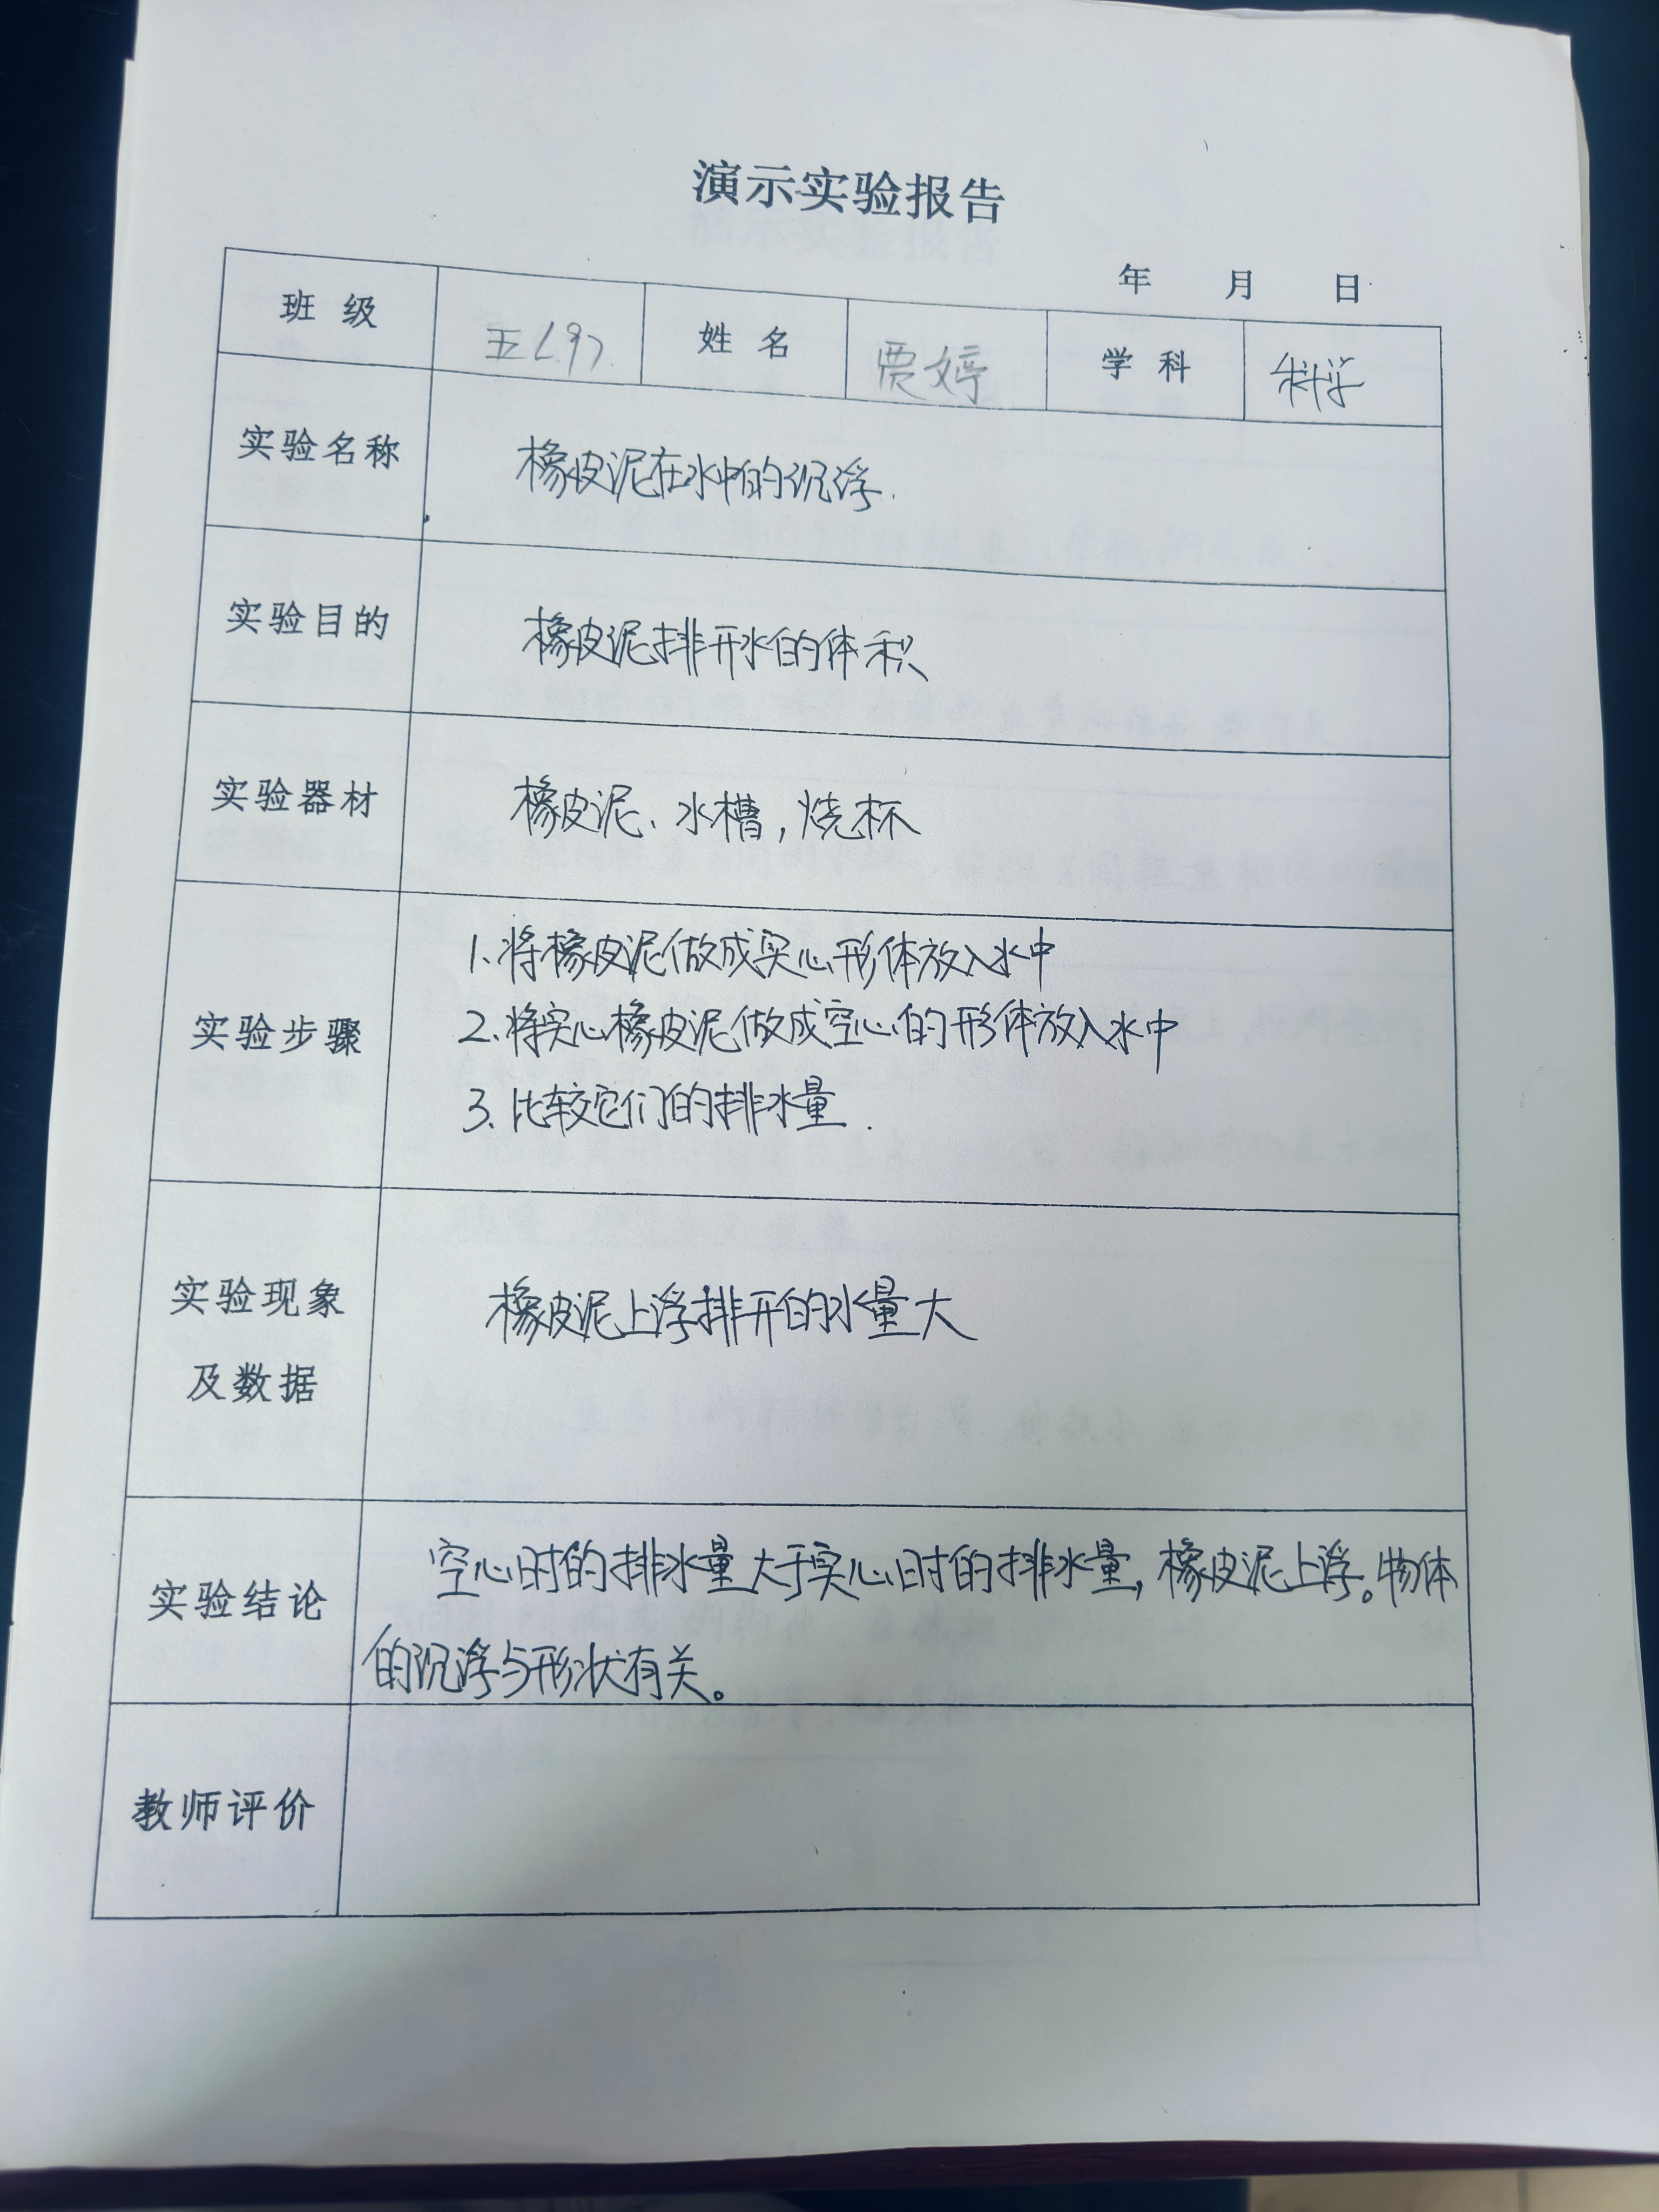 演示实验报告
年 月 日
班 级 五(9) 姓 名 贾婷 学 科 科学
实验名称 橡皮泥在水中的沉浮.
实验目的 橡皮泥排开水的体积
实验器材 橡皮泥、水槽,烧杯
实验步骤
1.将橡皮泥做成实心形体放入水中
2.将实心橡皮泥做成空心的形体放入水中
3.比较它们的排水量.
实验现象
及数据
橡皮泥上浮排开的水量大
实验结论
空心时的排水量大于实心时的排水量,橡皮泥上浮。物体
的沉浮与形状有关。
教师评价